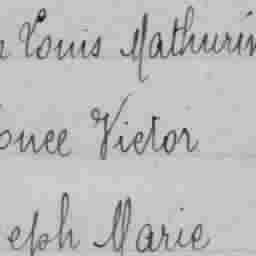 Louis Mathurin
Victor
eph Marie